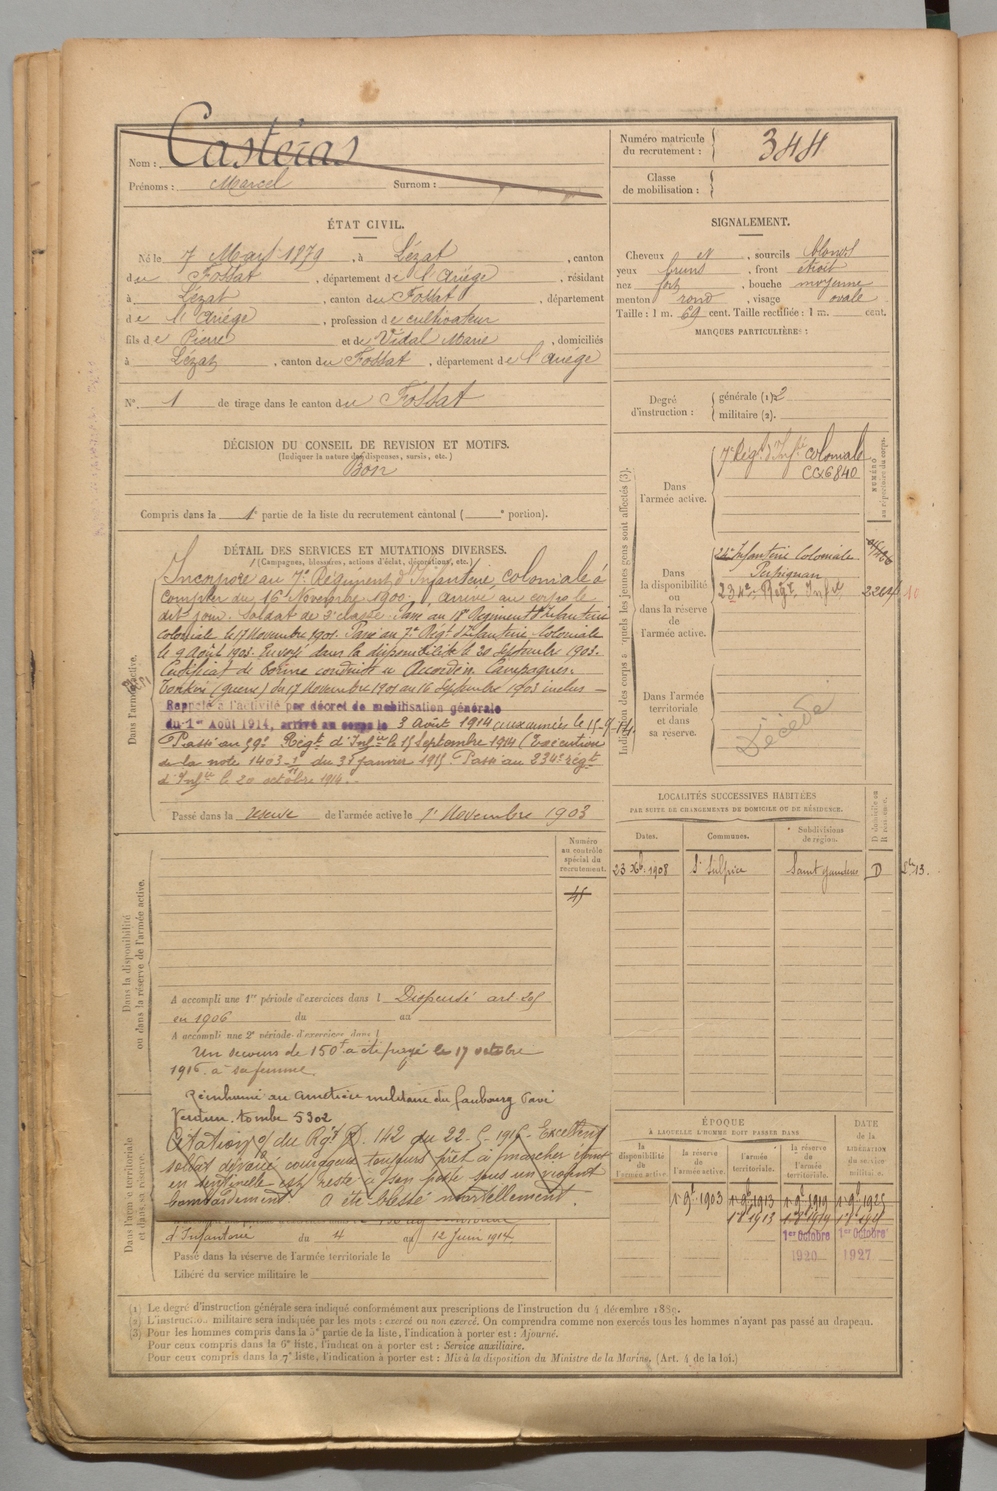 Nom : Castéras
Prénoms : Marcel Surnom :
Numéro matricule du recrutement : 344
Classe de mobilisation :
ÉTAT CIVIL.
Né le 7 Mars 1879, à Lézat, canton
du Fossat, département de l'Ariége, résidant
à Lézat, canton du Fossat, département
de l'Ariége, profession de cultivateur
fils de Pierre et de Vidal Marie, domiciliés
à Lézat, canton du Fossat, département de l'Ariége
N° 1 de tirage dans le canton du Fossat
SIGNALEMENT.
Cheveux et, sourcils blonds
yeux bruns, front étroit
nez fort, bouche moyenne
menton rond, visage ovale
Taille : 1 m. 69 cent. Taille rectifiée : 1 m. cent.
MARQUES PARTICULIÈRES :
Degré d'instruction : générale (1) 2
militaire (2).
DÉCISION DU CONSEIL DE REVISION ET MOTIFS.
(Indiquer la nature des dispenses, sursis, etc.)
Bon
Compris dans la 1e partie de la liste du recrutement cantonal ( e portion).
DÉTAIL DES SERVICES ET MUTATIONS DIVERSES.
(Campagnes, blessures, actions d'éclat, décorations, etc.)
Dans l'armée active.
Incorporé au 7e Régiment d'Infanterie coloniale à
compter du 16 Novembre 1900, arrivé au corps le
dit jour. Soldat de 2e classe. Passé au 18e Régiment d'Infanterie
coloniale le 17 Novembre 1901. Passé au 7e Régt d'Infanterie Coloniale
le 9 août 1903. Envoyé dans la disponibilité le 20 Septembre 1903.
Certificat de bonne conduite Accordé. Campagnes.
Tonkin (guerre) du 17 Novembre 1901 au 16 Septembre 1903 inclus
Rappelé à l'activité par décret de mobilisation générale
du 1er Août 1914, arrivé au corps le 3 Août 1914 aux armées le 15-9-14.
Passé au 59e Régt d'Infie le 15 Septembre 1914 (Exécution
de la note 1403-1/11 du 31 Janvier 1915. Passé au 234e régt
d'Infie le 20 octobre 1914.
Passé dans la réserve de l'armée active le 1er Novembre 1903
Indication des corps auxquels les jeunes gens sont affectés (3).
NUMÉRO au répertoire du corps.
Dans l'armée active.
7e Régt d'Infie coloniale
CC 6840
Dans la disponibilité ou dans la réserve de l'armée active.
Infanterie Coloniale
Perpignan
234e Régt Infie
Dans l'armée territoriale et dans sa réserve.
Décédé
LOCALITÉS SUCCESSIVES HABITÉES
PAR SUITE DE CHANGEMENTS DE DOMICILE OU DE RÉSIDENCE.
Dates. Communes. Subdivisions de région. D domicile ou R résidence.
23 Xbre 1908 St Sulpice Saint Gaudens D
Dans la disponibilité ou dans la réserve de l'armée active.
Numéro au contrôle spécial du recrutement.
A accompli une 1re période d'exercices dans l Dispensé art.
en 1906 du au
A accompli une 2e période d'exercices dans l
Un secours de 150f a été payé le 17 octobre
1916 à sa femme
Réinhumé au cimetière militaire du faubourg Pavé
Verdun. tombe 5302
Citation O/ du Rgt No 142 du 22-5-1916 - Excellent
soldat dévoué courageux toujours prêt à marcher étant
en sentinelle est resté à son poste sous un violent
bombardement. A été blessé mortellement.
Dans l'armée territoriale et dans sa réserve.
d'Infanterie du 4 au 12 Juin 1914
Passé dans la réserve de l'armée territoriale le
Libéré du service militaire le
ÉPOQUE
À LAQUELLE L'HOMME DOIT PASSER DANS
la disponibilité de l'armée active. la réserve de l'armée active. l'armée territoriale. la réserve de l'armée territoriale.
DATE de la LIBÉRATION du service militaire.
1er 9bre 1903 1er 9bre 1913 1er 9bre 1919 1er 9bre 1925
1er Octobre 1920 1er Octobre 1927
(1) Le degré d'instruction générale sera indiqué conformément aux prescriptions de l'instruction du 4 décembre 1889.
(2) L'instruction militaire sera indiquée par les mots : exercé ou non exercé. On comprendra comme non exercés tous les hommes n'ayant pas passé au drapeau.
(3) Pour les hommes compris dans la 5e partie de la liste, l'indication à porter est : Ajourné.
Pour ceux compris dans la 6e liste, l'indication à porter est : Service auxiliaire.
Pour ceux compris dans la 7e liste, l'indication à porter est : Mis à la disposition du Ministre de la Marine. (Art. 4 de la loi.)